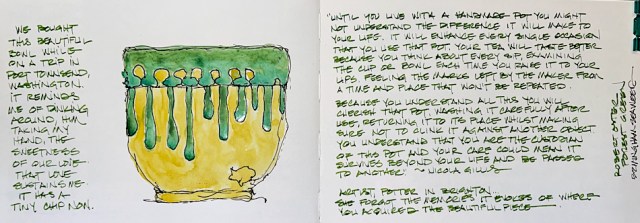 WE BOUGHT
THIS BEAUTIFUL
BOWL WHILE
ON A TRIP IN
PORT TOWNSEND,
WASHINGTON.
IT REMINDS
ME OF
AROUND, HIM
TAKING MY
HAND, THE
SWEETNESS
OF OUR LOVE.
THAT LOVE
SUSTAINS ME.
IT HAS A
TINY CHIP NOW.
"UNTIL YOU LIVE WITH A HANDMADE POT YOU MIGHT
NOT UNDERSTAND THE DIFFERENCE IT WILL MAKE TO
YOUR LIFE. IT WILL ENHANCE EVERY SINGLE OCCASION
THAT YOU USE THAT POT. YOUR TEA WILL TASTE BETTER
BECAUSE YOU THINK ABOUT EVERY SIP, EXAMINING
THE CUP OR BOWL EACH TIME YOU RAISE IT TO YOUR
LIPS, FEELING THE MARKS LEFT BY THE MAKER FROM
A TIME AND PLACE THAT WON'T BE REPEATED.
BECAUSE YOU UNDERSTAND ALL THIS YOU WILL
CHERISH THAT POT, WASHING IT CAREFULLY AFTER
USE, RETURNING IT TO ITS PLACE WHILST MAKING
SURE NOT TO CLINK IT AGAINST ANOTHER OBJECT
YOU UNDERSTAND THAT YOU ARE THE CUSTODIAN
OF THIS POT AND YOUR CARE COULD MEAN IT
SURVIVES BEYOND YOUR LIFE AND BE PASSED
TO ANOTHER." ~ NICOLA GILLIS
ARTIST, POTTER IN BRIGHTON
SHE FORGOT THE MEMORIES IT EVOKES OF WHERE
YOU ACQUIRED THE BEAUTIFUL PIECE
ROBERT OSTER
FOREST GREEN